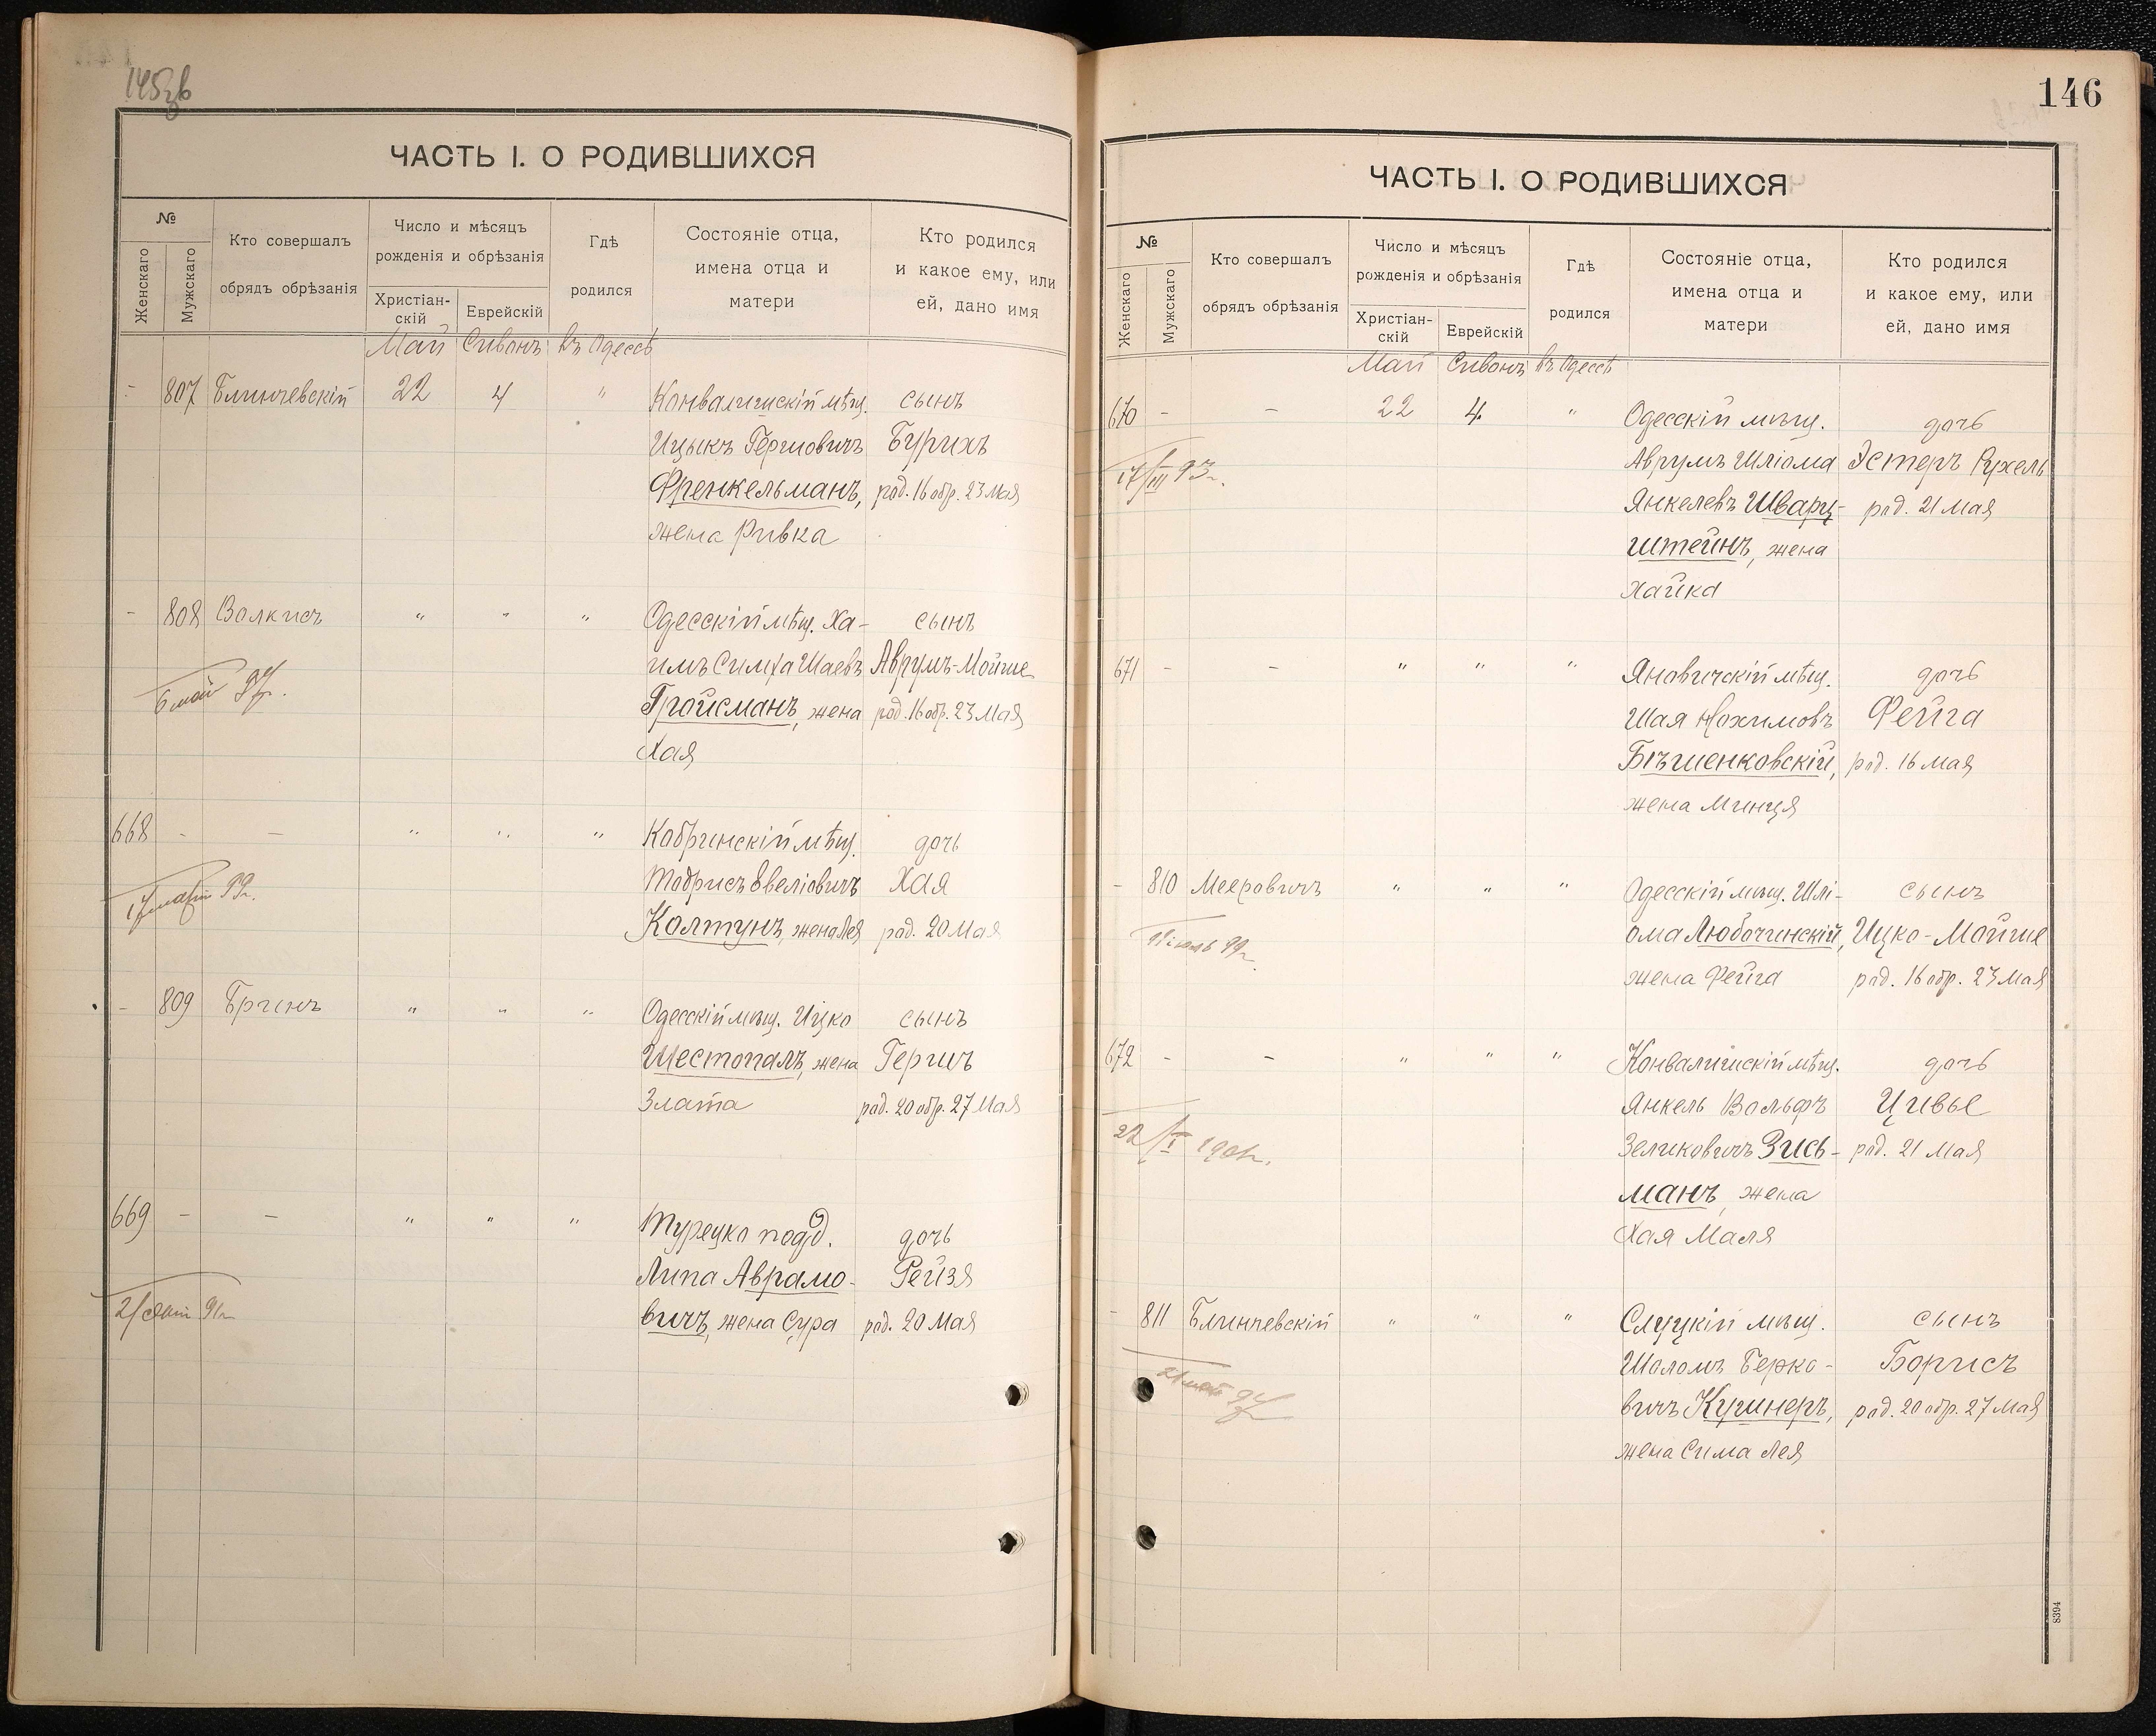 ЧАСТЬ I. О РОДИВШИХСЯ
№
Женскаго
Мужскаго
Кто совершалъ
обрядъ обрѣзанія
Число и мѣсяцъ
рожденія и обрѣзанія
Христіан-
скій
Еврейскій
Гдѣ
родился
Состояніе отца,
имена отца и
матери
Кто родился
и какое ему, или
ей, дано имя
Май Сиванъ въ Одессѣ
- 807 Блинчевскій 22 4 " Конвалишскій мѣщ. сынъ
Ицыкъ Гершовичъ Бурихъ
Френкельманъ, род. 16 обр. 23 Мая
жена Ривка
- 808 Волкисъ " " " Одесскій мѣщ. Ха- сынъ
имъ Симха Шаевъ Аврумъ-Мойше
6 май 97г. Гройсманъ, жена род. 16 обр. 23 Мая
Хая
668 - - " " " Кобринскій мѣщ. дочь
Тодрисъ Евеліовичъ Хая
99г. Колтунъ, жена Лея род. 20 Мая
- 809 Бринъ " " " Одесскій мѣщ. Ицко сынъ
Шестопалъ, жена Гершъ
Злата род. 20 обр. 27 Мая
669 - - " " " Турецко подд. дочь
Липа Аврамо- Рейзя
вичъ, жена Сура род. 20 Мая
146
ЧАСТЬ I. О РОДИВШИХСЯ
№
Женскаго
Мужскаго
Кто совершалъ
обрядъ обрѣзанія
Число и мѣсяцъ
рожденія и обрѣзанія
Христіан-
скій
Еврейскій
Гдѣ
родился
Состояніе отца,
имена отца и
матери
Кто родился
и какое ему, или
ей, дано имя
Май Сиванъ въ Одессѣ
670 - - 22 4. " Одесскій мѣщ. дочь
17/III 93г. Аврумъ Шліома Эстеръ Рухель
Янкелевъ Шварц- род. 21 Мая
штейнъ, жена
Хайка
671 - - " " " Яновичскій мѣщ. дочь
Шая Нохимовъ Фейга
Бѣшенковскій, род. 16 Мая
жена Минця
- 810 Мееровичъ " " " Одесскій мѣщ. Шлі- сынъ
99г. ома Любочинскій, Ицко-Мойше
жена Фейга род. 16 обр. 23 Мая
672 - - " " " Конвалишскій мѣщ. дочь
Янкель Вольфъ Цивье
22/I 1901г. Зеликовичъ Зись- род. 21 Мая
манъ, жена
Хая Маля
- 811 Блинчевскій " " " Слуцкій мѣщ. сынъ
Шоломъ Берко- Борисъ
вичъ Кушнеръ, род. 20 обр. 27 Мая
жена Сима Лея
8394